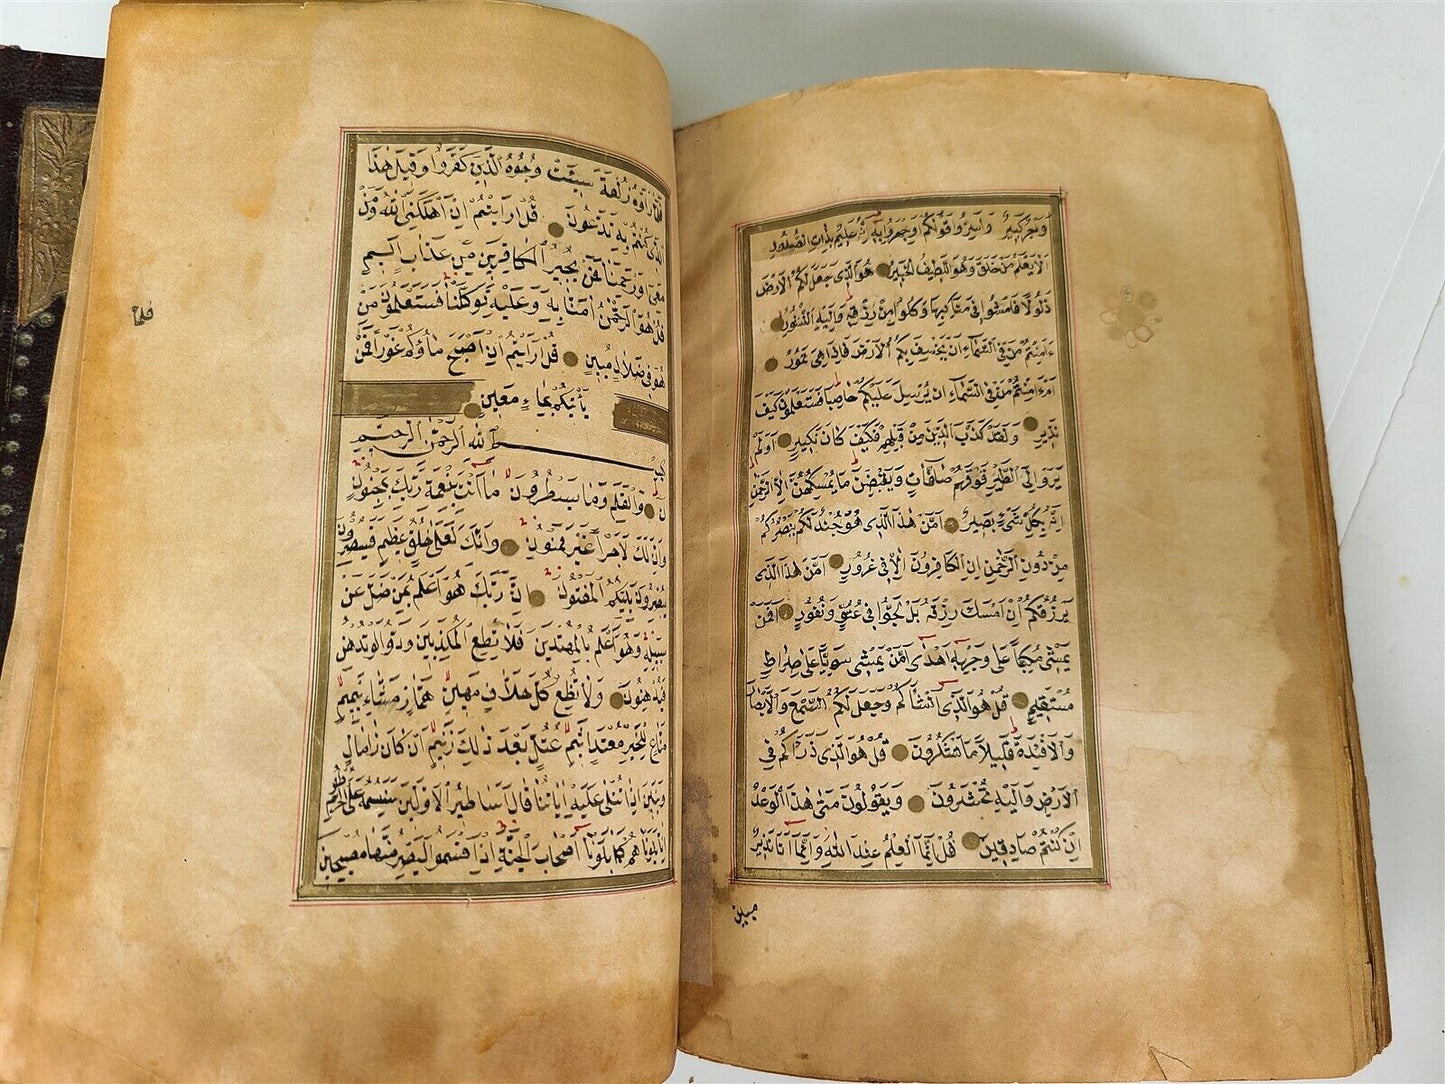 وَاَجْرٌ كَبِيرٌ وَاَسِرُّوا قَوْلَكُمْ اَوِ اجْهَرُوا بِهِ اِنَّهُ عَلِيمٌ بِذَاتِ الصُّدُورِ
اَلَا يَعْلَمُ مَنْ خَلَقَ وَهُوَ اللَّطِيفُ الْخَبِيرُ هُوَ الَّذِى جَعَلَ لَكُمُ الْاَرْضَ
ذَلُولًا فَامْشُوا فِى مَنَاكِبِهَا وَكُلُوا مِنْ رِزْقِهِ وَاِلَيْهِ النُّشُورُ
ءَاَمِنْتُمْ مَنْ فِى السَّمَاءِ اَنْ يَخْسِفَ بِكُمُ الْاَرْضَ فَاِذَا هِىَ تَمُورُ
اَمْ اَمِنْتُمْ مَنْ فِى السَّمَاءِ اَنْ يُرْسِلَ عَلَيْكُمْ حَاصِبًا فَسَتَعْلَمُونَ كَيْفَ
نَذِيرِ وَلَقَدْ كَذَّبَ الَّذِينَ مِنْ قَبْلِهِمْ فَكَيْفَ كَانَ نَكِيرِ اَوَلَمْ
يَرَوْا اِلَى الطَّيْرِ فَوْقَهُمْ صَافَّاتٍ وَيَقْبِضْنَ مَا يُمْسِكُهُنَّ اِلَّا الرَّحْمٰنُ
اِنَّهُ بِكُلِّ شَىْءٍ بَصِيرٌ اَمَّنْ هٰذَا الَّذِى هُوَ جُنْدٌ لَكُمْ يَنْصُرُكُمْ
مِنْ دُونِ الرَّحْمٰنِ اِنِ الْكَافِرُونَ اِلَّا فِى غُرُورٍ اَمَّنْ هٰذَا الَّذِى
يَرْزُقُكُمْ اِنْ اَمْسَكَ رِزْقَهُ بَلْ لَجُّوا فِى عُتُوٍّ وَنُفُورٍ اَفَمَنْ
يَمْشِى مُكِبًّا عَلَى وَجْهِهِ اَهْدَى اَمَّنْ يَمْشِى سَوِيًّا عَلَى صِرَاطٍ
مُسْتَقِيمٍ قُلْ هُوَ الَّذِى اَنْشَاَكُمْ وَجَعَلَ لَكُمُ السَّمْعَ وَالْاَبْصَارَ
وَالْاَفْئِدَةَ قَلِيلًا مَا تَشْكُرُونَ قُلْ هُوَ الَّذِى ذَرَاَكُمْ فِى
الْاَرْضِ وَاِلَيْهِ تُحْشَرُونَ وَيَقُولُونَ مَتَى هٰذَا الْوَعْدُ
اِنْ كُنْتُمْ صَادِقِينَ قُلْ اِنَّمَا الْعِلْمُ عِنْدَ اللّٰهِ وَاِنَّمَا اَنَا نَذِيرٌ
مبين
فَلَمَّا رَاَوْهُ زُلْفَةً سِيئَتْ وُجُوهُ الَّذِينَ كَفَرُوا وَقِيلَ هٰذَا
الَّذِى كُنْتُمْ بِهِ تَدَّعُونَ قُلْ اَرَاَيْتُمْ اِنْ اَهْلَكَنِىَ اللّٰهُ وَمَنْ
مَعِىَ اَوْ رَحِمَنَا فَمَنْ يُجِيرُ الْكَافِرِينَ مِنْ عَذَابٍ اَلِيمٍ
قُلْ هُوَ الرَّحْمٰنُ اٰمَنَّا بِهِ وَعَلَيْهِ تَوَكَّلْنَا فَسَتَعْلَمُونَ مَنْ
هُوَ فِى ضَلَالٍ مُبِينٍ قُلْ اَرَاَيْتُمْ اِنْ اَصْبَحَ مَاؤُكُمْ غَوْرًا فَمَنْ
يَاْتِيكُمْ بِمَاءٍ مَعِينٍ
بِسْمِ اللّٰهِ الرَّحْمٰنِ الرَّحِيمِ
نٓ وَالْقَلَمِ وَمَا يَسْطُرُونَ مَا اَنْتَ بِنِعْمَةِ رَبِّكَ بِمَجْنُونٍ
وَاِنَّ لَكَ لَاَجْرًا غَيْرَ مَمْنُونٍ وَاِنَّكَ لَعَلَى خُلُقٍ عَظِيمٍ فَسَتُبْصِرُ
وَيُبْصِرُونَ بِاَيِّكُمُ الْمَفْتُونُ اِنَّ رَبَّكَ هُوَ اَعْلَمُ بِمَنْ ضَلَّ عَنْ
سَبِيلِهِ وَهُوَ اَعْلَمُ بِالْمُهْتَدِينَ فَلَا تُطِعِ الْمُكَذِّبِينَ وَدُّوا لَوْ تُدْهِنُ
فَيُدْهِنُونَ وَلَا تُطِعْ كُلَّ حَلَّافٍ مَهِينٍ هَمَّازٍ مَشَّاءٍ بِنَمِيمٍ
مَنَّاعٍ لِلْخَيْرِ مُعْتَدٍ اَثِيمٍ عُتُلٍّ بَعْدَ ذٰلِكَ زَنِيمٍ اَنْ كَانَ ذَا مَالٍ
وَبَنِينَ اِذَا تُتْلَى عَلَيْهِ اٰيَاتُنَا قَالَ اَسَاطِيرُ الْاَوَّلِينَ سَنَسِمُهُ عَلَى الْخُرْطُومِ
اِنَّا بَلَوْنَاهُمْ كَمَا بَلَوْنَا اَصْحَابَ الْجَنَّةِ اِذْ اَقْسَمُوا لَيَصْرِمُنَّهَا مُصْبِحِينَ
فلما